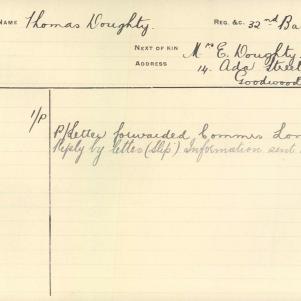 NAME Thomas Doughty. REG. &C. 32nd Ba
NEXT OF KIN Mrs E. Doughty.
ADDRESS 14. Ada Street
Goodwood
1/P
P/Letter forwarded Commrs Lon
Reply by letter (Slip) Information sent